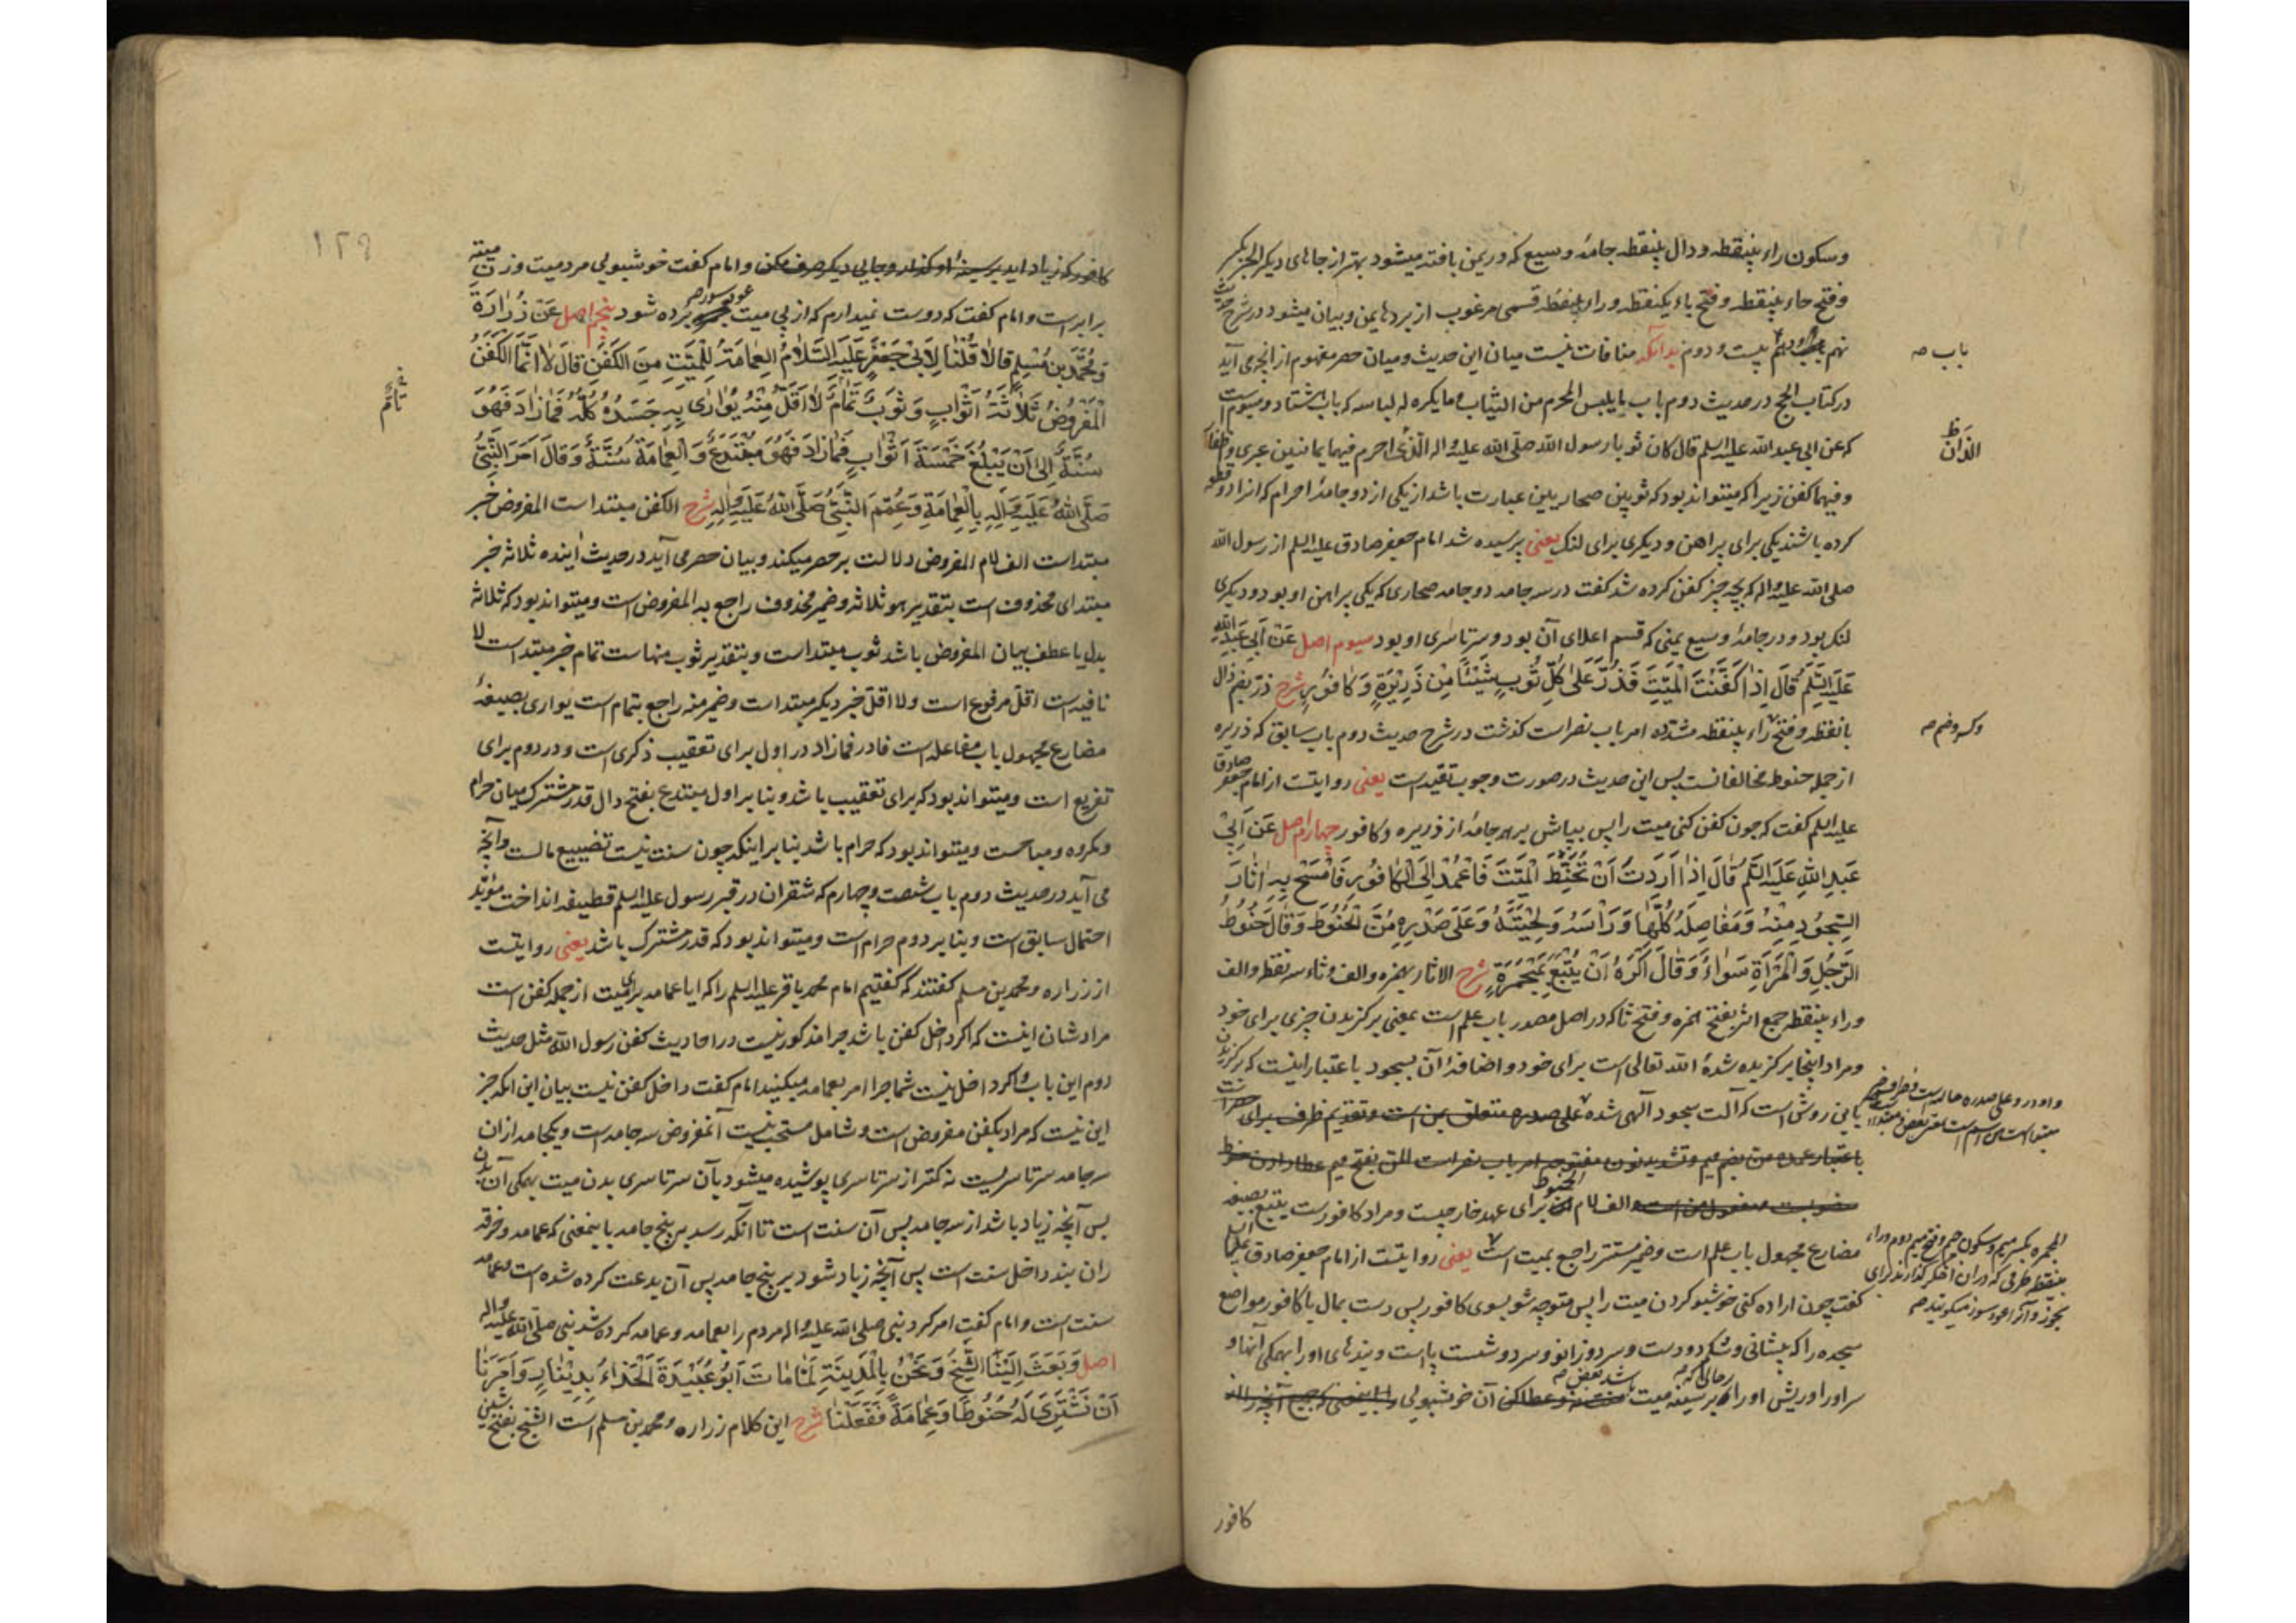 وسکون راء بینقطه و دال بینقطه جامهٔ وسیع که در یمن بافته میشود بهتر از جاهای دیگر الحبر بکسر
وفتح حاء بینقطه وفتح باء یکنقطه وراء بینقطه قسمی مرغوب از بردهای یمن وبیان میشود در شرح حدیث
نهم بیست ودوم بدانکه منافات نیست میان این حدیث ومیان حصر مفهوم از آنچه می آید
باب صه
در کتاب الحج در حدیث دوم باب ما یلبس المحرم من الثیاب وما یکره له لباسه که باب هشتاد وسیوم است
که عن ابی عبد الله علیه السلم قال کان ثوبا رسول الله صلی الله علیه واله الذی احرم فیهما یمانیین عبری وظفار
اللذان ظ
وفیهما کفن زیرا که میتواند بود که ثوبین صحاریین عبارت باشد از یکی از دو جامهٔ احرام که انرا دو قطعه
کرده باشند یکی برای پراهن و دیکری برای لنک یعنی پرسیده شد امام جعفر صادق علیه السلم از رسول الله
صلی الله علیه واله که بچه چیز کفن کرده شد کفت در سه جامه دو جامه صحاری که یکی پراهن او بود ودیکری
لنک بود و در جامهٔ وسیع یمنی که قسم اعلای آن بود وسرتاسری او بود سیوم اصل عَنْ اَبی عَبْدِ اللهِ
عَلَیْهِ السَّلَمُ قَالَ اِذَا کَفَّنْتَ الْمَیِّتَ فَذُرَّ عَلَی کُلِّ ثَوْبٍ شَیْئًا مِنْ ذَرِیْرَةٍ وَکَافُوْرٍ شرح ذر بضم ذال
بانقطه وفتح راء بینقطه مشدده امر باب نصر است کذشت در شرح حدیث دوم باب سابق که ذریره
وکسر وضم صه
از جمله حنوط مخالفانست پس این حدیث در صورت وجوب تقیه است یعنی روایتست از امام جعفر صادق
علیه السلم کفت که چون کفن کنی میت را پس بپاش بر هر جامهٔ از ذریره وکافور چهارم اصل عَنْ اَبِیْ
عَبْدِ اللهِ عَلَیْهِ السَّلَمُ قَالَ اِذَا اَرَدْتَ اَنْ تُحَنِّطَ الْمَیِّتَ فَاعْمَدْ اِلَی الْکَافُوْرِ فَامْسَحْ بِهِ اٰثَارَ
السُّجُوْدِ مِنْهُ وَمَفَاصِلَهُ کُلَّهَا وَرَاْسَهُ وَلِحْیَتَهُ وَعَلَی صَدْرِهِ مِنَ الْحَنُوْطِ وَقَالَ حَنُوْطُ
الرَّجُلِ وَالْمَرْاَةِ سَوَاءٌ وَقَالَ اَکْرَهُ اَنْ یُتْبَعَ بِمِجْمَرَةٍ شرح الاثار بهمزه والف وثاء سه نقطه والف
وراء بینقطه جمع اثر بفتح همزه وفتح ثا که در اصل مصدر باب علم است بمعنی برکزیدن چیزی برای خود
ومراد اینجا برکزیده شدهٔ الله تعالی است برای خود و اضافهٔ آن بسجود باعتبار اینست که برکزیدن
باین روش است که آلت سجود آلهی شده علی صدره متعلق بمن است وتقدیم ظرف برای حصر است
باعتبار عمده من بضم میم وتشدید نون مفتوحه امر باب نصر است المن بفتح میم عطا دادن حنوط
منصوب است مفعول من است والف لام الحنوط برای عهد خارجیست ومراد کافور است یتبع بصیغه
مضارع مجهول باب علم است وضمیر مستتر راجع بمیت است یعنی روایتست از امام جعفر صادق علیه السلم
المجمره بکسر میم وسکون جیم وفتح میم دوم وراء
بینقطه ظرفی که دران اخکر کذارند برای
بخور وآنرا عود سوز میکویند صه
کفت چون اراده کنی خوشبو کردن میت را پس متوجه شو بسوی کافور پس دست بمال با کافور مواضع
سجده را که پیشانی ودو کف دست وسر دو زانو وسر دو شست پا است وبندهای اورا همکی آنها و
سر اورا وریش اورا وبر سینه میت آن خوشبویی را باینمعنی که جمیع آنچه از ان
کافور
کافور که زیاد اید بر سینهٔ او کذار وجایی دیکر صرف مکن وامام کفت خوشبویی مرد میت وزن میته
برابر است وامام کفت که دوست نمیدارم که از پی میت عود سوز برده شود پنجم اصل عَنْ زُرَارَةَ
وَمُحَمَّدِ بْنِ مُسْلِمٍ قَالَا قُلْنَا لِاَبِیْ جَعْفَرٍ عَلَیْهِ السَّلَامُ الْعِمَامَةُ لِلْمَیِّتِ مِنَ الْکَفَنِ قَالَ لَا اِنَّمَا الْکَفَنُ
الْمَفْرُوْضُ ثَلَاثَةُ اَثْوَابٍ وَثَوْبٌ تَمَامٌ لَا اَقَلَّ مِنْهُ یُوَارَی بِهِ جَسَدُهُ کُلُّهُ فَمَا زَادَ فَهُوَ
سُنَّةٌ اِلَی اَنْ یَبْلُغَ خَمْسَةَ اَثْوَابٍ فَمَا زَادَ فَهُوَ مُبْتَدَعٌ وَالْعِمَامَةُ سُنَّةٌ وَقَالَ اَمَرَ النَّبِیُّ
صَلَّی اللهُ عَلَیْهِ وَاٰلِهِ بِالْعِمَامَةِ وَعُمِّمَ النَّبِیُّ صَلَّی اللهُ عَلَیْهِ وَاٰلِهِ شرح الکفن مبتداست المفروض خبر
مبتداست الف لام المفروض دلالت بر حصر میکند وبیان حصر می آید در حدیث آینده ثلاثة خبر
مبتدای محذوف است بتقدیر هو ثلاثة وضمیر محذوف راجع به المفروض است ومیتواند بود که ثلاثة
بدل یا عطف بیان المفروض باشد ثوب مبتداست وبتقدیر ثوب منها است تمام خبر مبتداست لا
نافیه است اقل مرفوع است ولا اقل خبر دیکر مبتداست وضمیر منه راجع بتمام است یواری بصیغهٔ
مضارع مجهول باب مفاعله است فا در فما زاد در اول برای تعقیب ذکری است ودر دوم برای
تفریع است ومیتواند بود که برای تعقیب باشد وبنا بر اول مبتدع بفتح دال قدر مشترک میان حرام
ومکروه ومباحست ومیتواند بود که حرام باشد بنا بر اینکه چون سنت نیست تضییع مالست وآنچه
می آید در حدیث دوم باب شصت وچهارم که شقران در قبر رسول علیه السلم قطیفه انداخت مؤید
احتمال سابق است وبنا بر دوم حرام است ومیتواند بود که قدر مشترک باشد یعنی روایتست
از زراره ومحمد بن مسلم کفتند که کفتیم امام محمد باقر علیه السلم را که ایا عمامه برای میت از جمله کفن است
مراد شان اینست که اکر داخل کفن باشد چرا مذکور نیست در احادیث کفن رسول الله مثل حدیث
دوم این باب واکر داخل نیست شما چرا امر بعمامه میکنید امام کفت داخل کفن نیست بیان این انکه جز
این نیست که مراد بکفن مفروض است وشامل مستحب نیست آنمفروض سه جامه است ویکجامه از ان
سه جامه سرتاسریست نه کمتر از سرتاسری پوشیده میشود بآن سرتاسری بدن میت همکی آن بدن
پس آنچه زیاد باشد از سه جامه پس آن سنت است تا آنکه رسد به پنج جامه باینمعنی که عمامه وخرقه
ران بند داخل سنت است پس آنچه زیاد شود بر پنج جامه پس آن بدعت کرده شده است وعمامه
سنت است وامام کفت امر کرد نبی صلی الله علیه واله مردم را بعمامه وعمامه کرده شد نبی صلی الله علیه واله
اصل وَبَعَثَ اِلَیْنَا الشَّیْخُ وَنَحْنُ بِالْمَدِیْنَةِ لَمَّا مَاتَ اَبُوْ عُبَیْدَةَ الْحَذَّاءُ بِدِیْنَارٍ وَاَمَرَنَا
اَنْ نَشْتَرِیَ لَهُ حَنُوْطًا وَعِمَامَةً فَفَعَلْنَا شرح این کلام زراره ومحمد بن مسلم است الشیخ بفتح شین